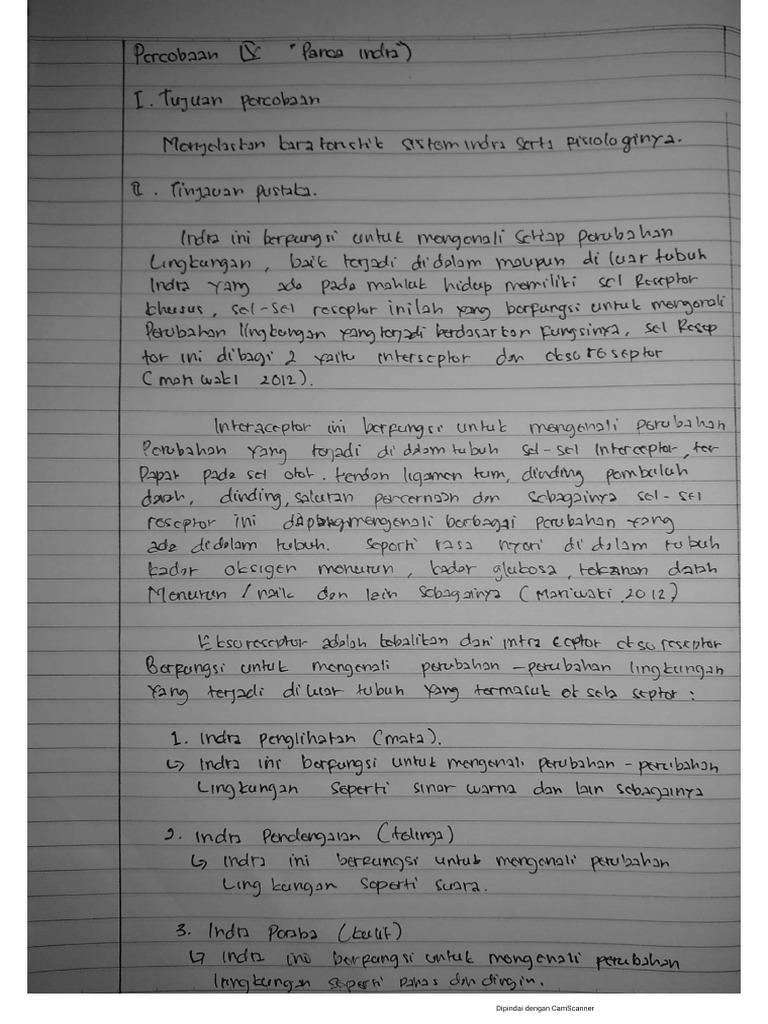 Percobaan IX "Panca indra")
I. Tujuan percobaan
Menjelaskan karateristik sistem indra serta pisiologinya.
II. Tinjauan pustaka.
Indra ini berpungsi untuk mengenali setiap perubahan
Lingkungan, baik terjadi di dalam maupun di luar tubuh
Indra yang ada pada mahluk hidup memiliki sel Reseptor
khusus, sel-sel reseptor inilah yang berpungsi untuk mengenali
Perubahan lingkungan yang terjadi berdasarkan fungsinya, sel Resep
tor ini dibagi 2 yaitu interseptor dan eksoreseptor
2012).
Interaceptor ini berpungsi untuk mengenali perubahan
Perubahan yang terjadi di dalam tubuh sel-sel Interceptor, ter
Papar pada sel otot. tendon ligamen tum, dinding pembuluh
darah, dinding, saluran pencernaan dan sebagainya sel-sel
reseptor ini mengenali berbagai perubahan yang
ada didalam tubuh. Seperti rasa nyeri di dalam tubuh
kadar oksigen menurun, kadar glukosa, tekanan darah
Menurun / naik dan lain sebagainya (Maniwaki, 2012)
Eksoreseptor adalah kebalikan dari intra ceptor eksoreseptor
Berpungsi untuk mengenali perubahan-perubahan lingkungan
Yang terjadi di luar tubuh yang termasuk ek sela septor :
1. Indra Penglihatan (mata).
↳ Indra ini berpungsi untuk mengenali perubahan - perubahan
Lingkungan seperti sinar warna dan lain sebagainya
2. Indra Pendengaran (telinga)
↳ Indra ini berpungsi untuk mengenali perubahan
Ling kungan seperti suara.
3. Indra Peraba (kulit)
↳ Indra ini berpungsi untuk mengenali perubahan
lingkungan seperti panas dan dingin.
Dipindai dengan CamScanner